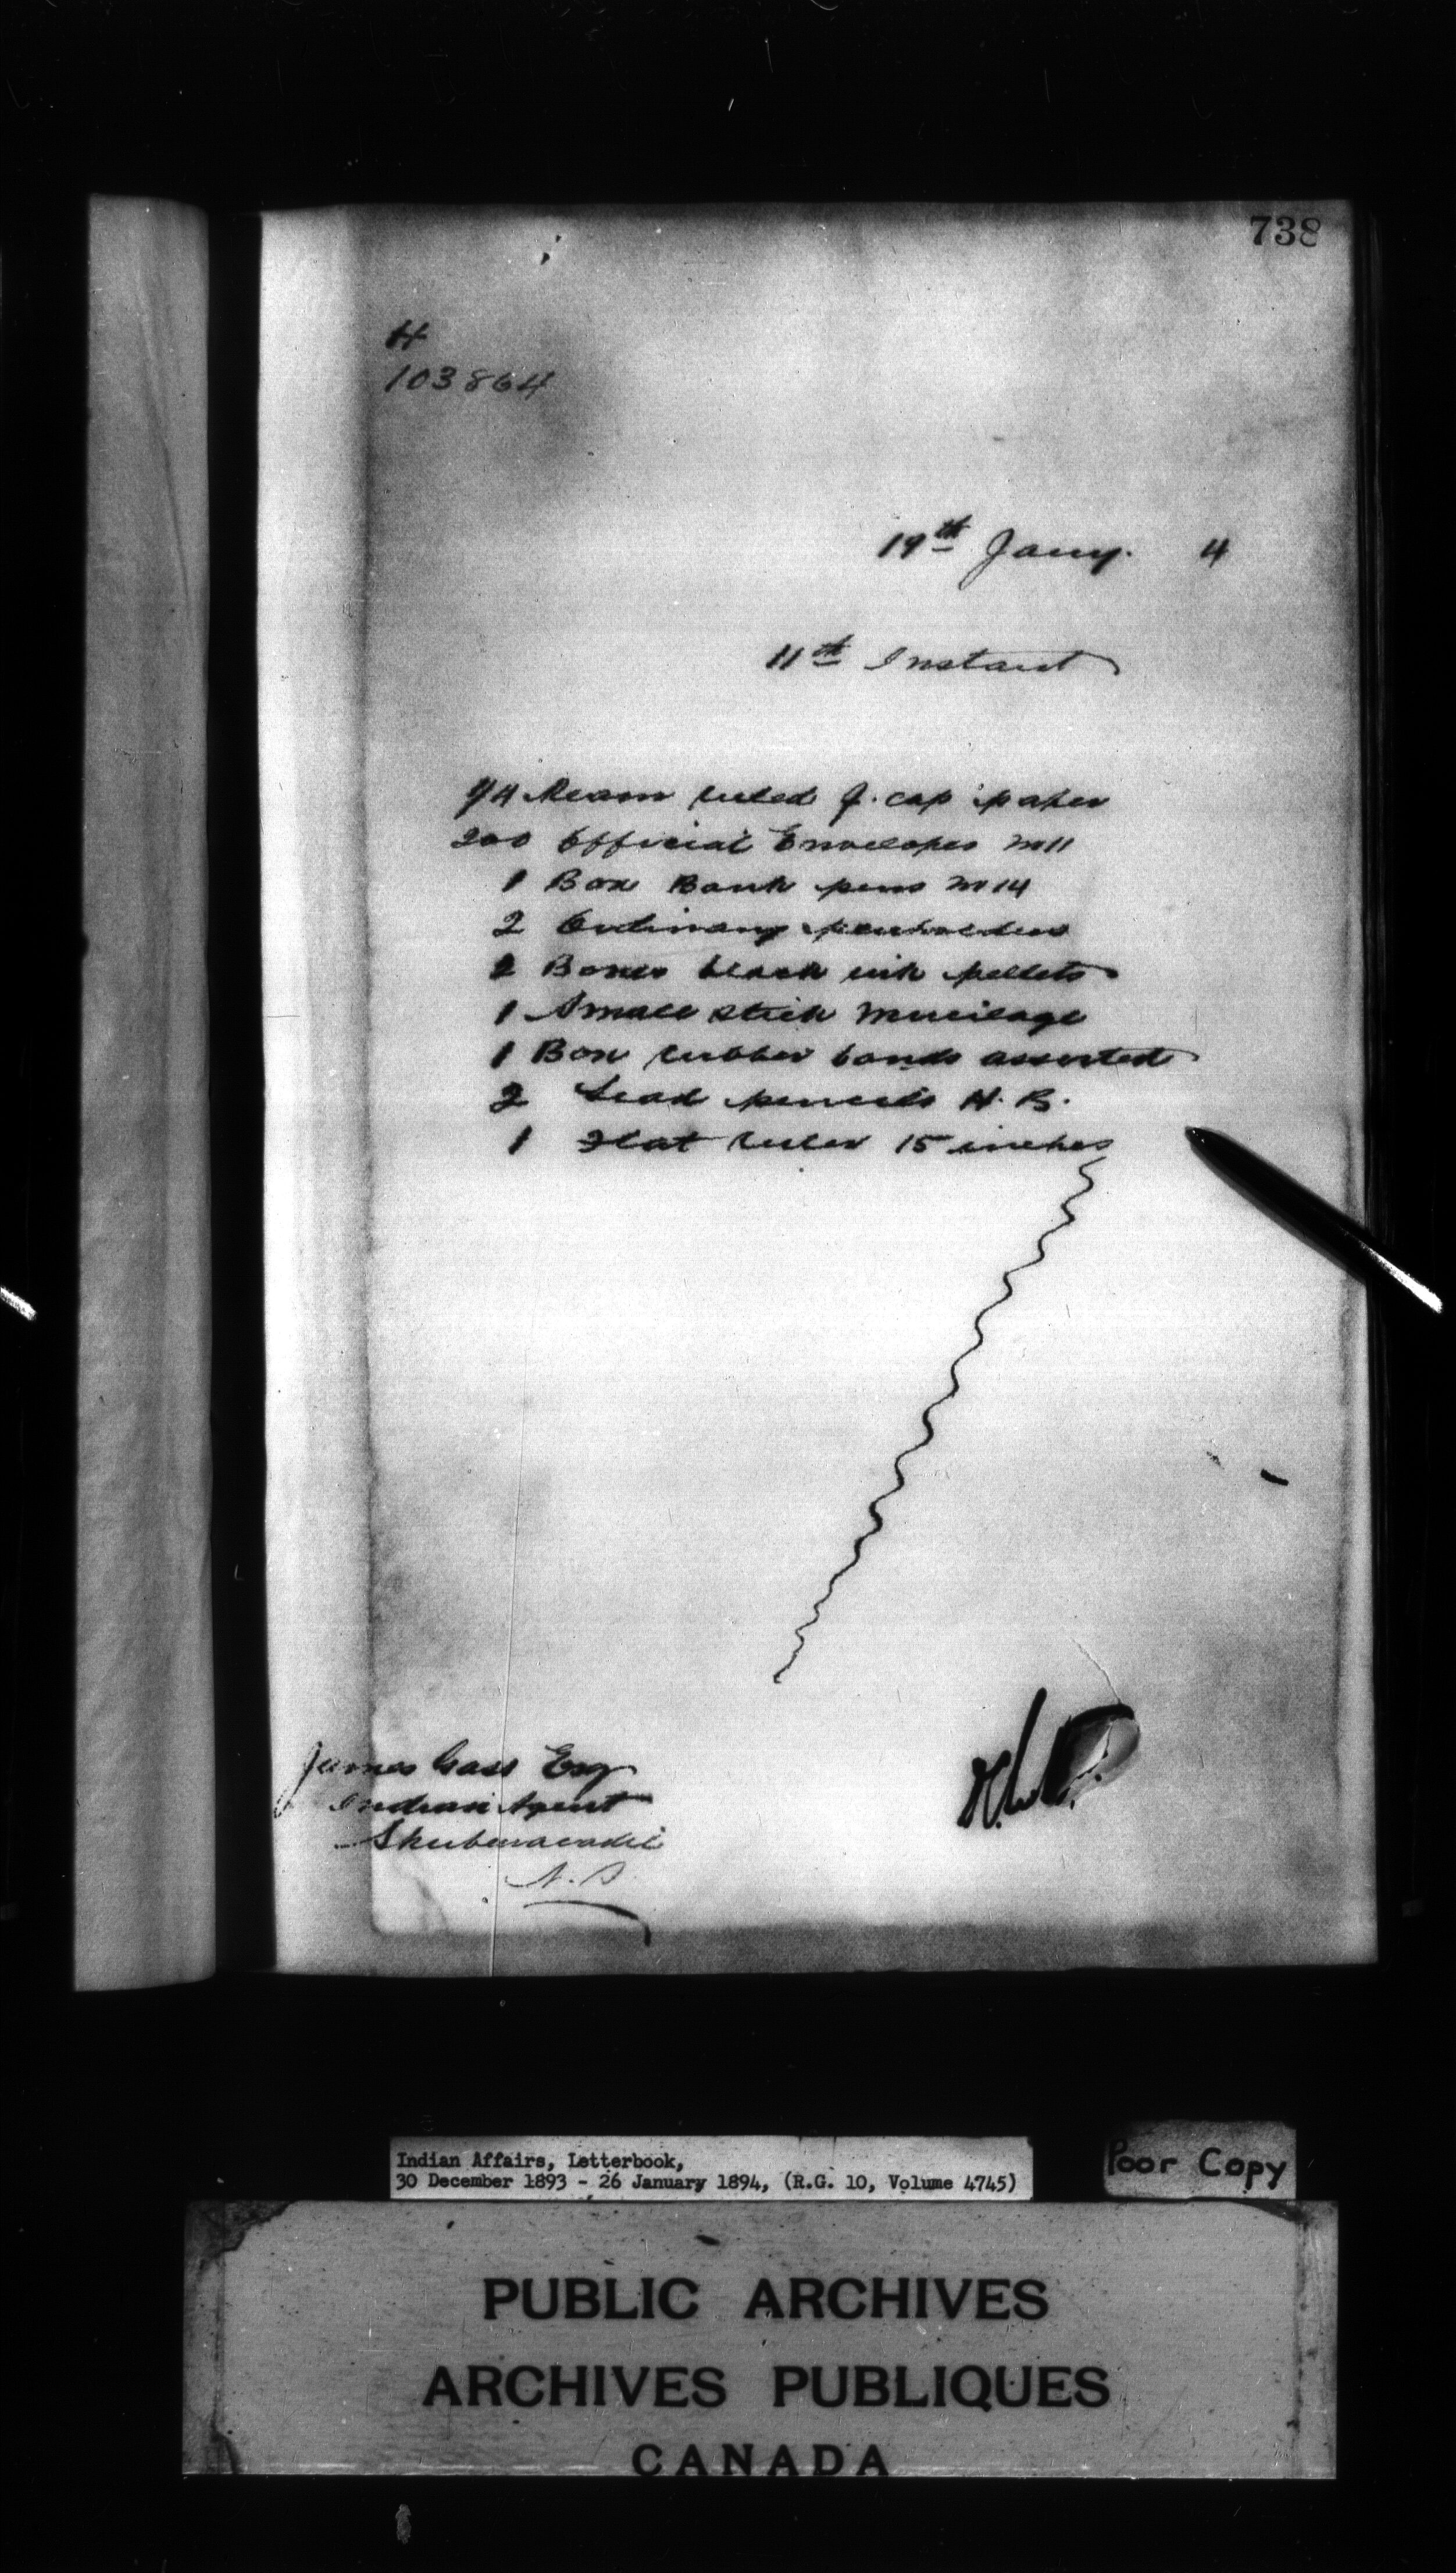 738
H
103864
19th Jany. 4
11th Instant
1/4 Ream ruled f. cap paper
200 Official Envelopes No 11
1 Box Bank pens No 14
2 Ordinary penholders
2 Boxes black ink pellets
1 Small stick Mucilage
1 Box rubber bands assorted
2 Lead pencils H.B.
1 Flat ruler 15 inches
James Gass Esq
Indian Agent
Shubenacadie
N.S.
Indian Affairs, Letterbook,
30 December 1893 - 26 January 1894, (R.G. 10, Volume 4745)
Poor Copy
PUBLIC ARCHIVES
ARCHIVES PUBLIQUES
CANADA